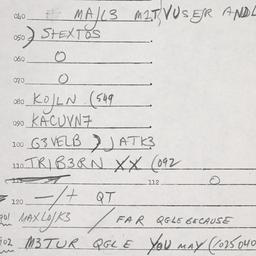 040 MAJL3 M2T,VUSEJR ANDL
050 ) STEXTOS
060 O
070 O
080 KOJLN (549
090 KACUVN7
100 G3VELB ) JATK3
110 TRIB3RN XX (092
112 O
120 —/+ QT
901 MAXLOJK3 / FAR QGLE BECAUSE
902 M3TUR QGLE YOU MAY (1025040